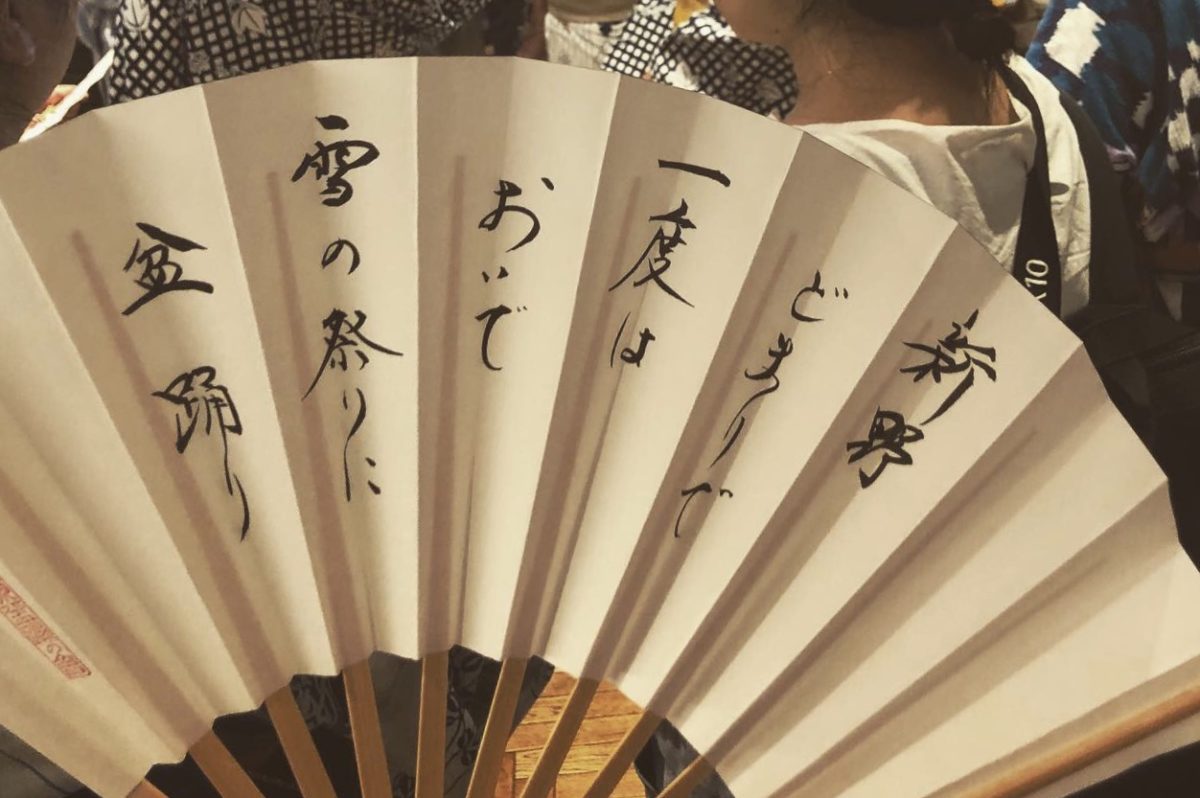 新野
どまりで
一度は
おいで
雪の祭りに
盆踊り
K10